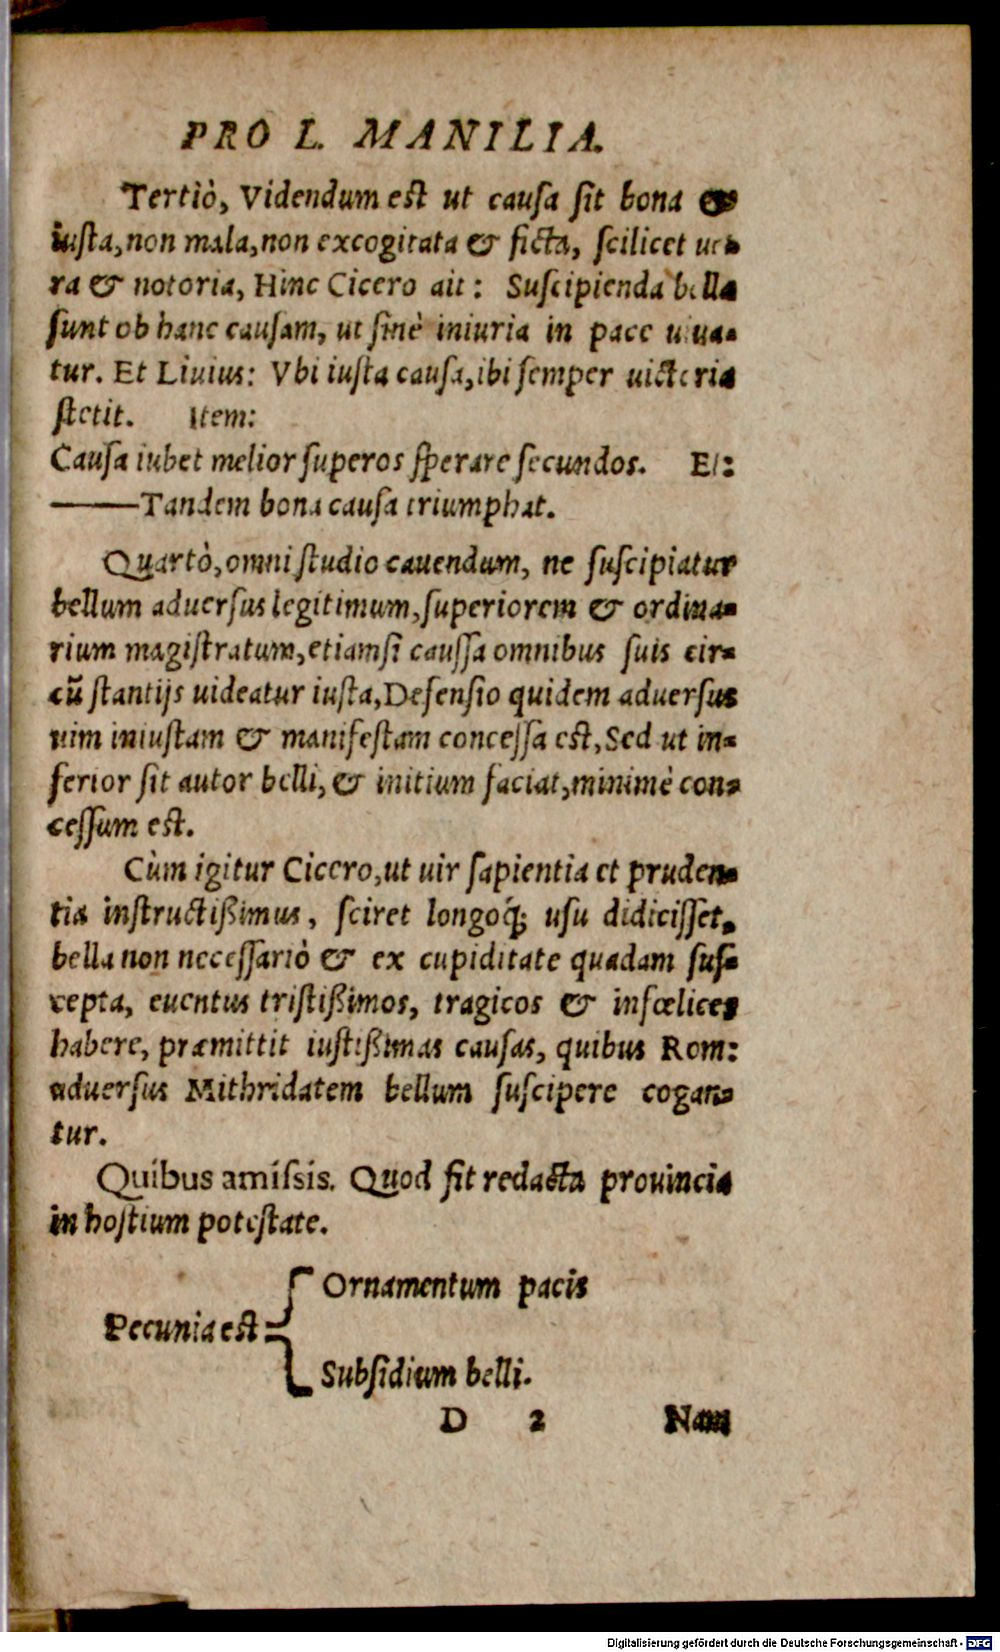 PRO L. MANILIA.
Tertiò, Videndum est ut causa sit bona &
iusta, non mala, non excogitata & ficta, scilicet ue-
ra & notoria, Hinc Cicero ait: Suscipienda bella
sunt ob hanc causam, ut sinè iniuria in pace uiua-
tur. Et Liuius: Vbi iusta causa, ibi semper uictoria
stetit. Item:
Causa iubet melior superos sperare secundos. Et:
———Tandem bona causa triumphat.
Quartò, omni studio cauendum, ne suscipiatur
bellum aduersus legitimum, superiorem & ordina-
rium magistratum, etiamsi caussa omnibus suis cir-
cũstantijs uideatur iusta, Defensio quidem aduersus
uim iniustam & manifestam concessa est, Sed ut in-
ferior sit autor belli, & initium faciat, minimè con-
cessum est.
Cùm igitur Cicero, ut uir sapientia et pruden-
tia instructißimus, sciret longoq́; usu didicisset,
bella non necessariò & ex cupiditate quadam sus-
cepta, euentus tristißimos, tragicos & infœlices
habere, præmittit iustißimas causas, quibus Rom:
aduersus Mithridatem bellum suscipere cogan-
tur.
Quibus amissis. Quod sit redacta prouincia
in hostium potestate.
Ornamentum pacis
Pecunia est
Subsidium belli.
D 2 Nam
Digitalisierung gefördert durch die Deutsche Forschungsgemeinschaft - DFG